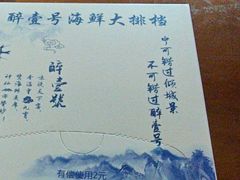 醉壹号海鲜大排档
宁可错过倾城景
不可错过醉壹号
醉壹號
有偿使用2元